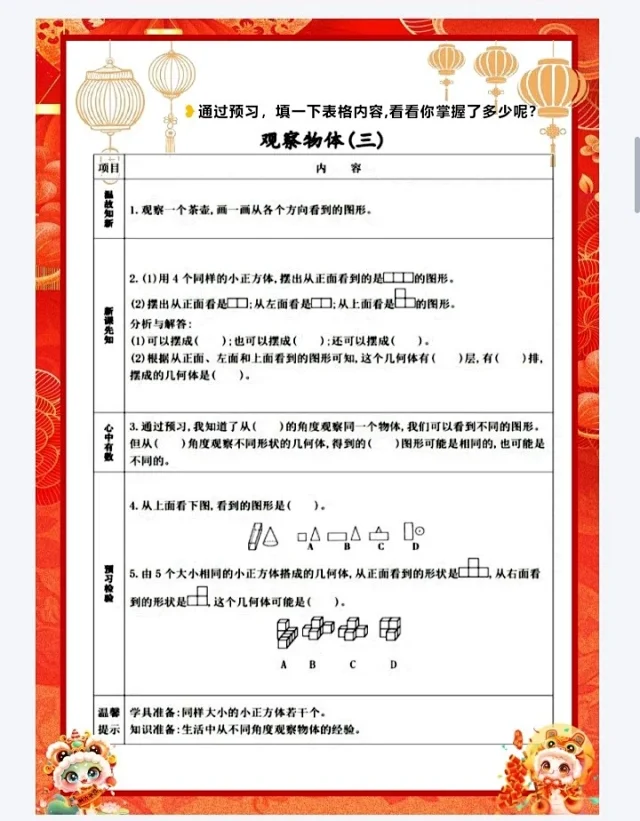 通过预习，填一下表格内容,看看你掌握了多少呢?
观察物体(三)
项目 内 容
温故知新
1.观察一个茶壶,画一画从各个方向看到的图形。
新课先知
2.(1)用4个同样的小正方体,摆出从正面看到的是的图形。
(2)摆出从正面看是;从左面看是;从上面看是的图形。
分析与解答:
(1)可以摆成( );也可以摆成( );还可以摆成( )。
(2)根据从正面、左面和上面看到的图形可知,这个几何体有( )层,有( )排,
摆成的几何体是( )。
心中有数
3.通过预习,我知道了从( )的角度观察同一个物体,我们可以看到不同的图形。
但从( )角度观察不同形状的几何体,得到的( )图形可能是相同的,也可能是
不同的。
预习检验
4.从上面看下图,看到的图形是( )。
A B C D
5.由5个大小相同的小正方体搭成的几何体,从正面看到的形状是,从右面看
到的形状是,这个几何体可能是( )。
A B C D
温馨提示
学具准备:同样大小的小正方体若干个。
知识准备:生活中从不同角度观察物体的经验。